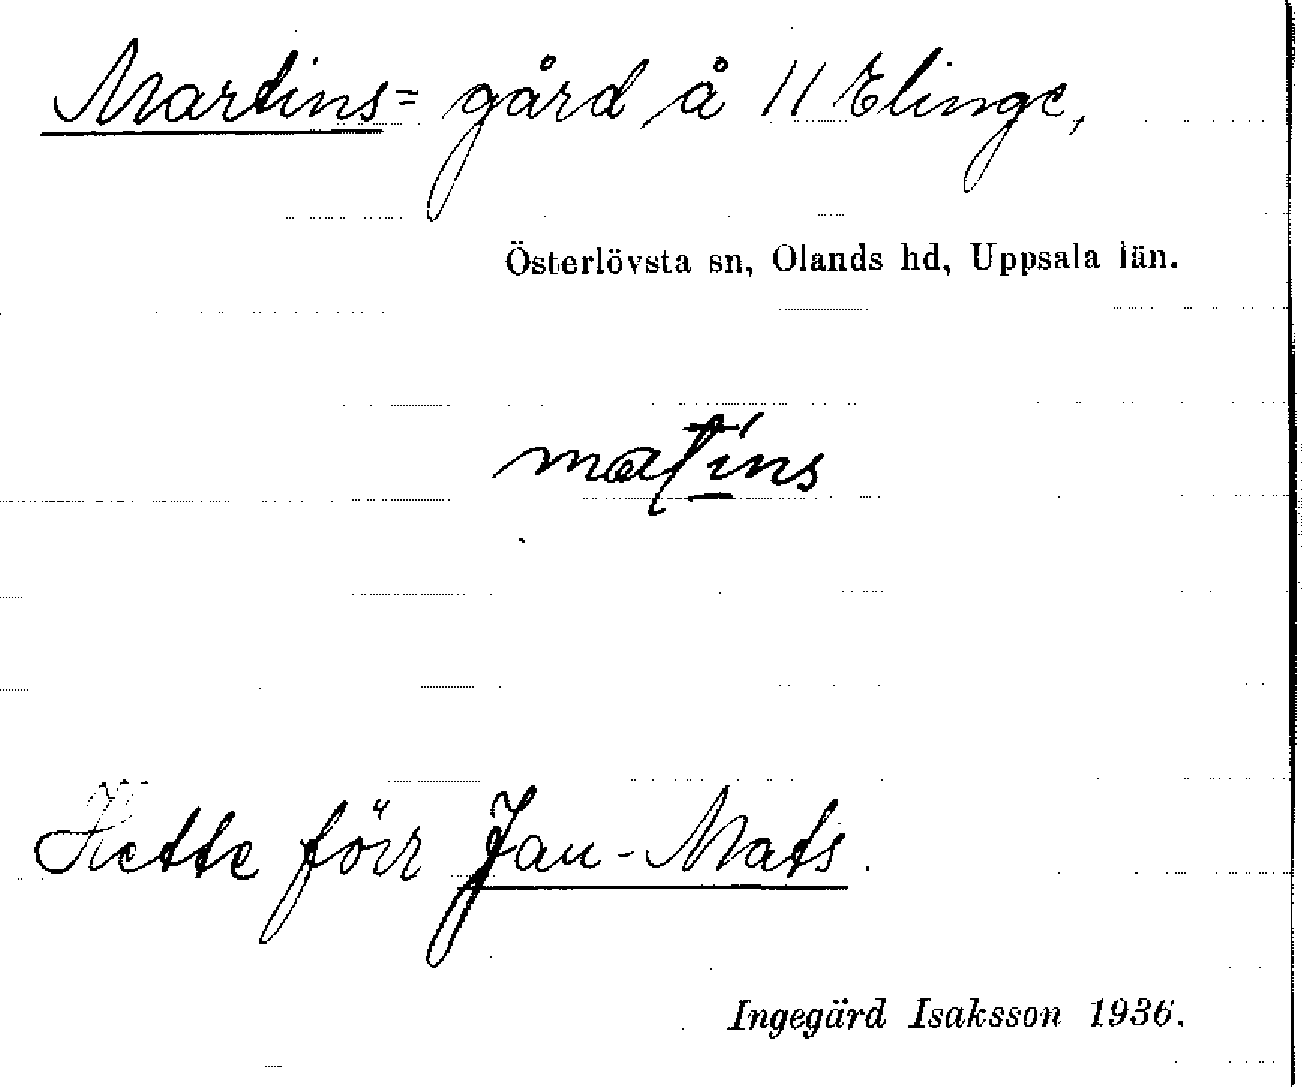 Martins= gård å 11 Elinge,
Österlövsta sn, Olands hd, Uppsala län.
Hette förr Jan-Mats.
Ingegärd Isaksson 1936.